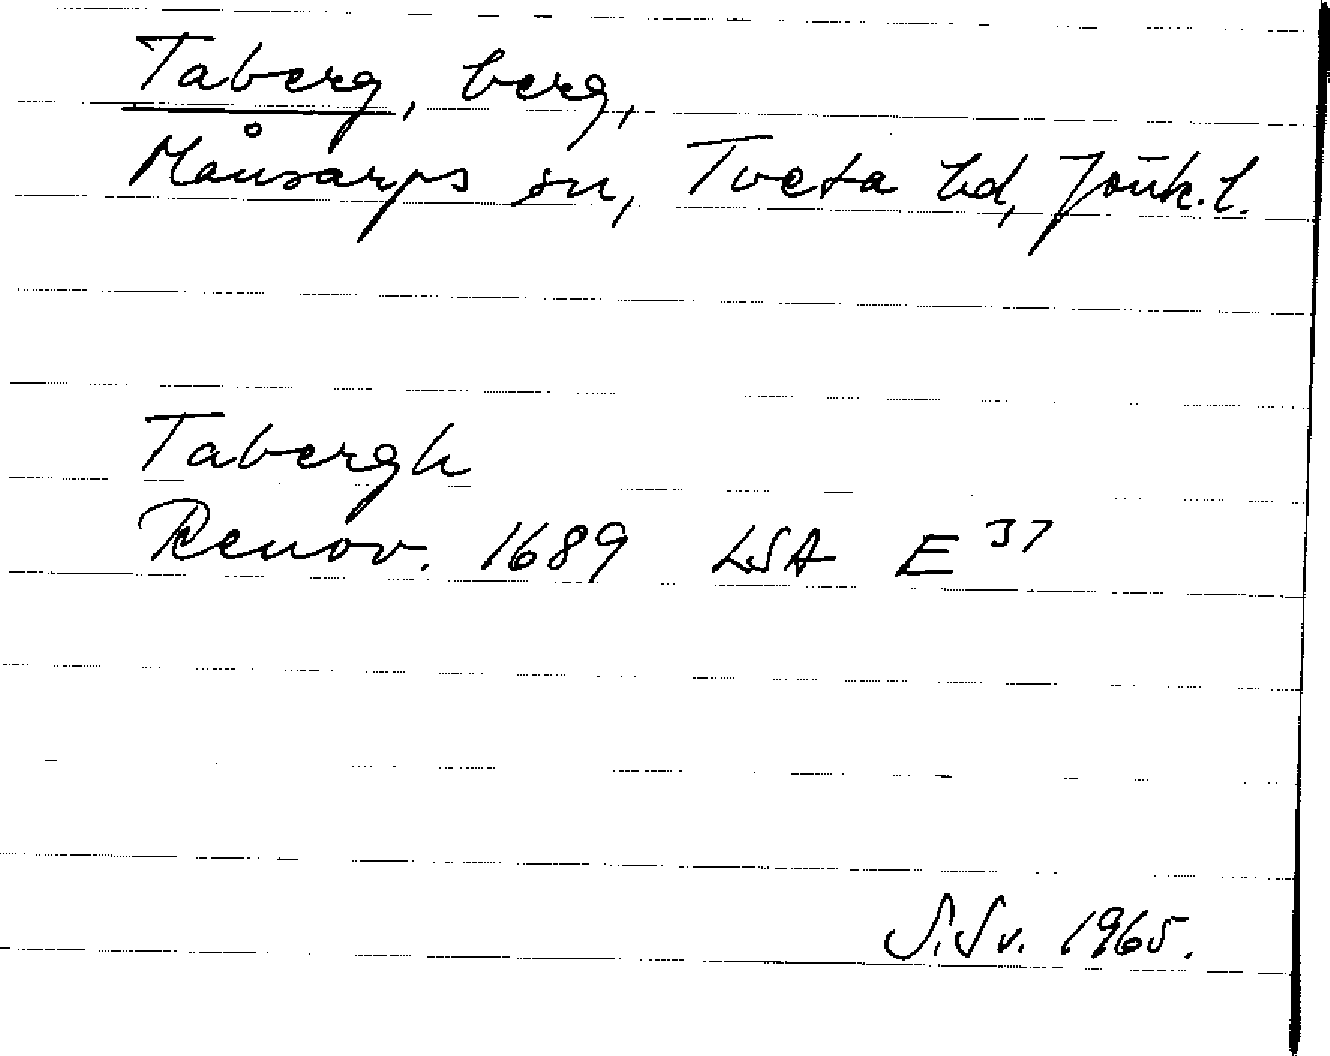 Taberg, berg,
Månsarps sn, Tveta hd, Jönk. l.
Tabergh
Renov. 1689 LSA E 37
S. Sv. 1965.